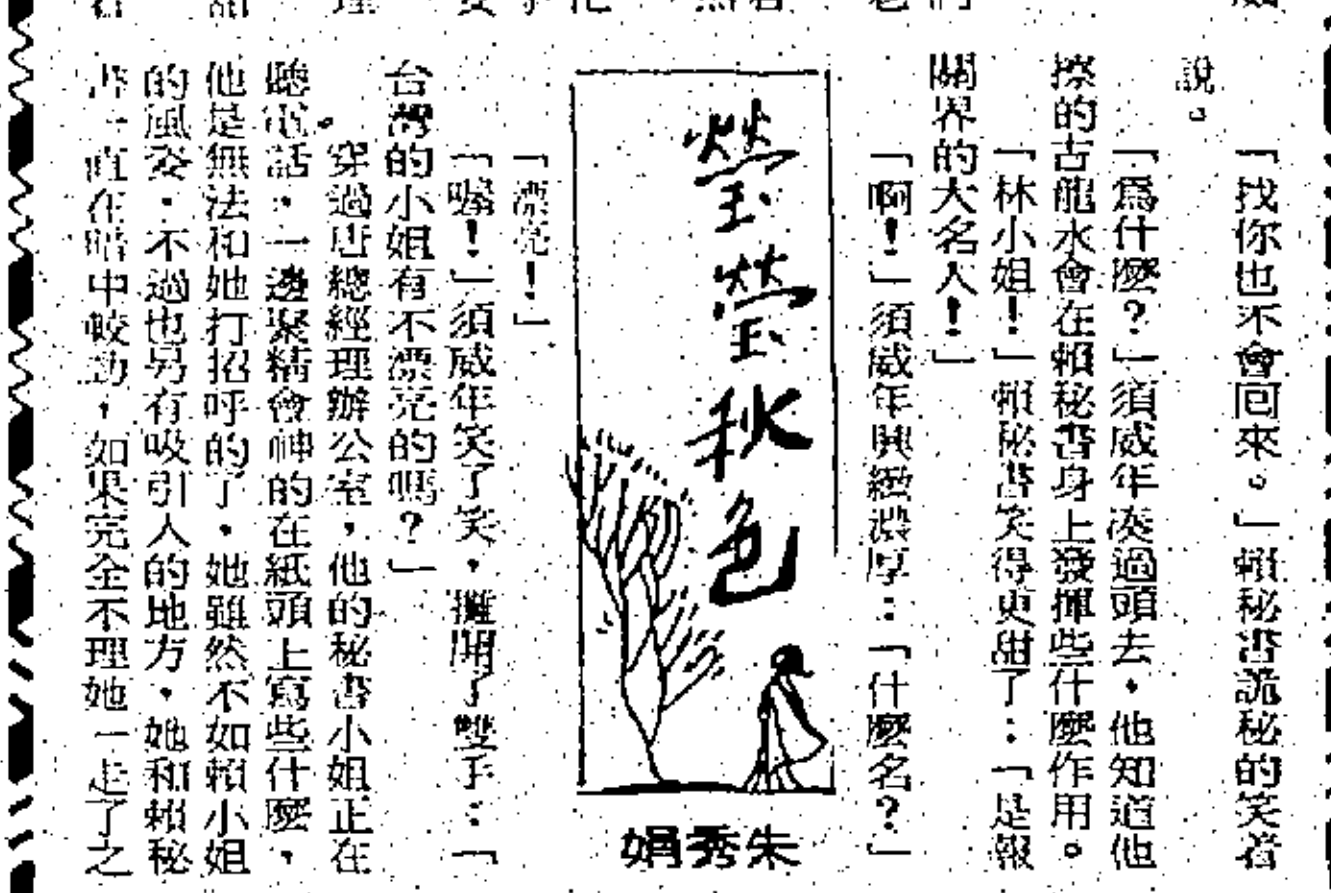 「找你也不會回來。」賴秘書詭秘的笑着
說。
「爲什麼？」須威年湊過頭去，他知道他
擦的古龍水會在賴秘書身上發揮些什麼作用。
「林小姐！」賴秘書笑得更甜了：「是報
關界的大名人！」
「啊！」須威年興緻濃厚：「什麼名？」
瑩瑩秋色
朱秀娟
「漂亮！」
「喔！」須威年笑了笑，攤開了雙手：「
台灣的小姐有不漂亮的嗎？」
穿過唐總經理辦公室，他的秘書小姐正在
聽電話，一邊聚精會神的在紙頭上寫些什麼，
他是無法和她打招呼的了，她雖然不如賴小姐
的風姿，不過也另有吸引人的地方，她和賴秘
書一直在暗中較勁，如果完全不理她一走了之